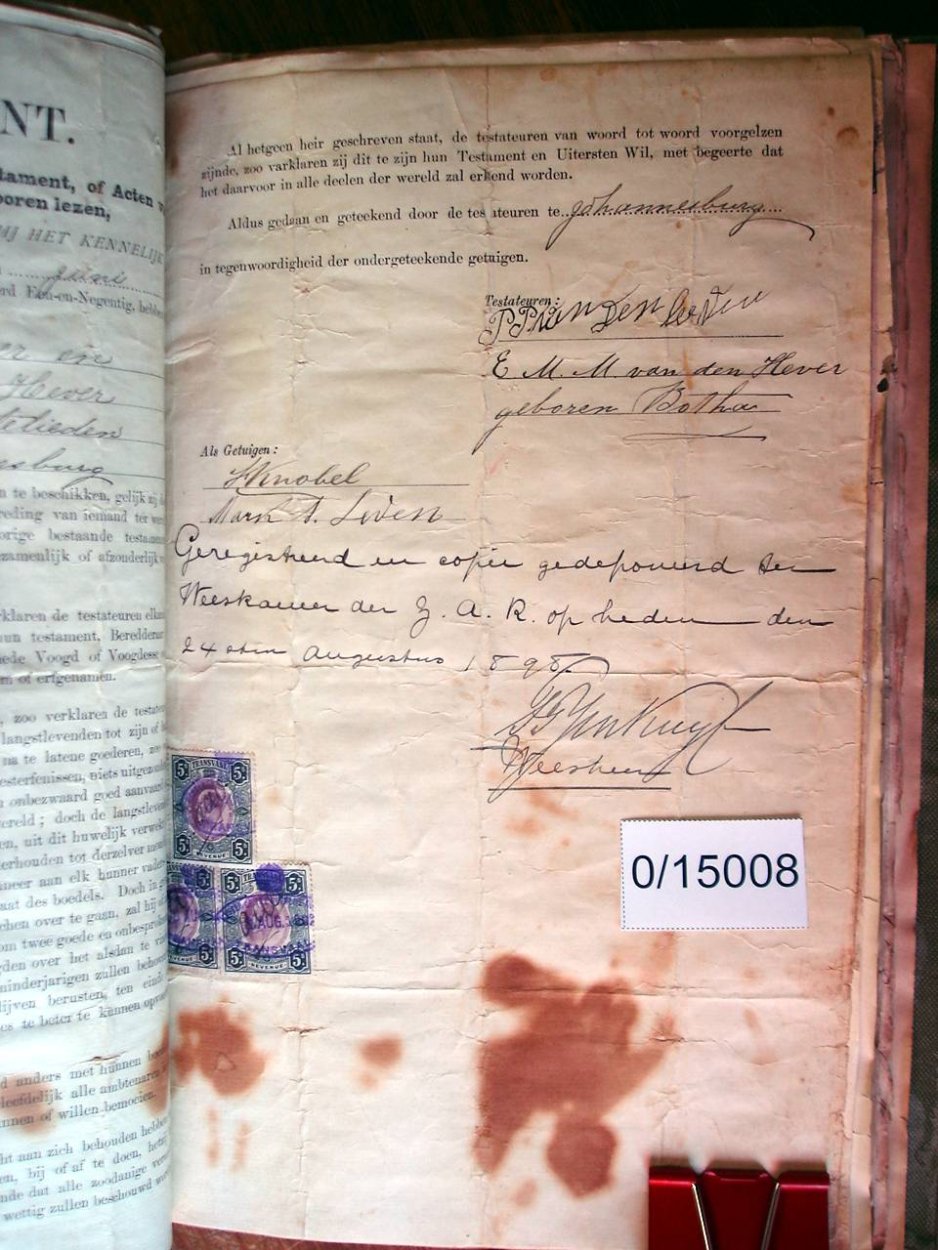 NT.
tament, of Acten
boren lezen,
MJ HET KENNELIJK
Juni
rd Een-en-Negentig, hebbe
er en
Hever
telieden
esburg
n te beschikken, gelijk zij d
reding van iemand ter we
orige bestaande testam
zamenlijk of afzonderlijk
rklaren de testateuren elka
un testament, Beredderaar
ede Voogd of Voogdesse
m of erfgenamen.
, zoo verklaren de testate
langstlevenden tot zijn of
na te latene goederen, ze
esterfenissen, niets uitgezo
onbezwaard goed aanvaar
ereld; doch de langstleve
en, uit dit huwelijk verwek
erhouden tot derzelver meer
neer aan elk hunner vader
aat des boedels. Doch in g
chen over te gaan, zal hij of
om twee goede en onbespro
gden over het alsdan te va
ninderjarigen zullen behoe
lijven berusten, ten einde
es te beter te kunnen opvo
d anders met hunnen boe
leefdelijk alle ambtenaren
nnen of willen bemoeien.
ht aan zich behouden hebbe
en, bij of af te doen, hetz
nde dat alle zoodanige vera
wettig zullen beschouwd wo
Al hetgeen heir geschreven staat, de testateuren van woord tot woord voorgelzen
zijnde, zoo varklaren zij dit te zijn hun Testament en Uitersten Wil, met begeerte dat
het daarvoor in alle deelen der wereld zal erkend worden.
Aldus gedaan en geteekend door de testateuren te Johannesburg
in tegenwoordigheid der ondergeteekende getuigen.
Testateuren:
PP van Den
E. M. M. van den Hever
geboren Botha
Als Getuigen:
Knobel
Mark
Geregistreerd en copie gedeponeerd ter
Weeskamer der Z. A. R. op heden den
24sten Augustus 1898
Weesheer
5s TRANSVAAL 5s
5s REVENUE 5s
5s 5s
5s REVENUE 5s
AUG.
TRANSVAAL
0/15008